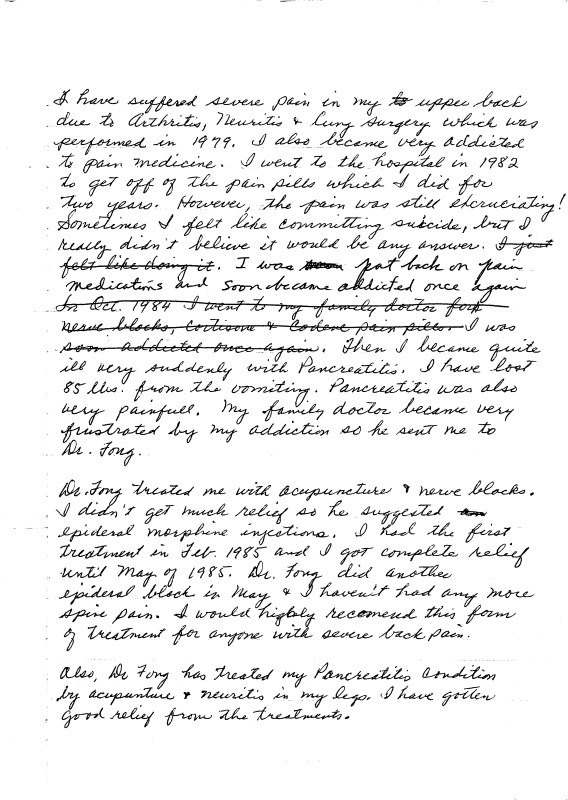 I have suffered severe pain in my to upper back
due to Arthritis, Neuritis & lung surgery which was
performed in 1979. I also became very addicted
to pain medicine. I went to the hospital in 1982
to get off of the pain pills which I did for
two years. However, the pain was still excruciating!
Sometimes I felt like committing suicide, but I
really didn't believe it would be any answer. I just
felt like doing it. I was put back on pain
medications and soon became addicted once again
In Oct. 1984 I went to my family doctor for
nerve blocks, Cortisone & Codene pain pills. I was
soon addicted once again. Then I became quite
ill very suddenly with Pancreatitis. I have lost
85 lbs. from the vomiting. Pancreatitis was also
very painfull. My family doctor became very
frustrated by my addiction so he sent me to
Dr. Fong.
Dr. Fong treated me with acupuncture & nerve blocks.
I didn't get much relief so he suggested
epideral morphine injections. I had the first
treatment in Feb. 1985 and I got complete relief
until May of 1985. Dr. Fong did another
epideral block in May & I haven't had any more
spine pain. I would highly recomend this form
of treatment for anyone with severe back pain.
Also, Dr Fong has treated my Pancreatitis condition
by acupunture & neuritis in my legs. I have gotten
good relief from the treatments.